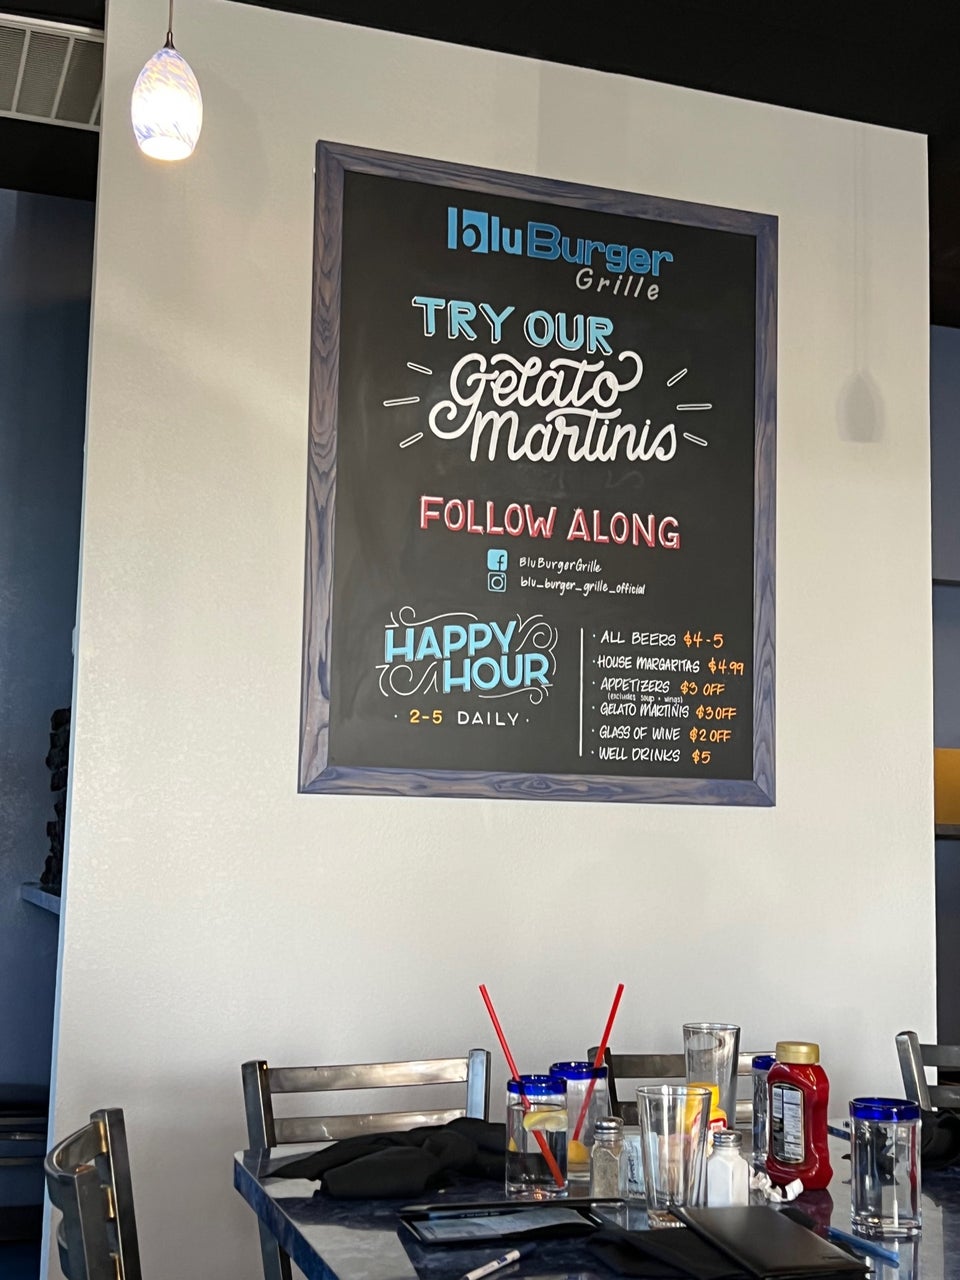 bluBurger
Grille
TRY OUR
Gelato
Martinis
FOLLOW ALONG
f BluBurgerGrille
blu_burger_grille_official
HAPPY
HOUR
· 2-5 DAILY ·
· ALL BEERS $4-5
· HOUSE MARGARITAS $4.99
· APPETIZERS $3 OFF
(excludes soup + wings)
· GELATO MARTINIS $3 OFF
· GLASS OF WINE $2 OFF
· WELL DRINKS $5